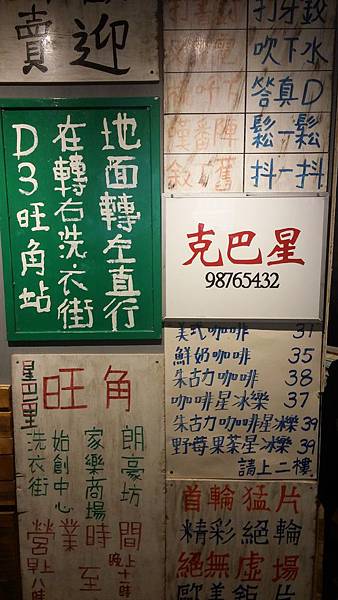 賣迎
打牙鉸
吹下水
答真D
鬆一鬆
抖一抖
敘舊
地面轉左直行
在轉右洗衣街
D3旺角站
克巴星
98765432
美式咖啡 31
鮮奶咖啡 35
朱古力咖啡 38
咖啡星冰樂 37
朱古力咖啡星冰樂 39
野莓果茶星冰樂 39
請上二樓
旺角
朗豪坊
家樂商場
始創中心
洗衣街
營業時間
晚上十時
至
八時
首輪猛片
精彩絕輪
絕無虛場
歐美鉅片